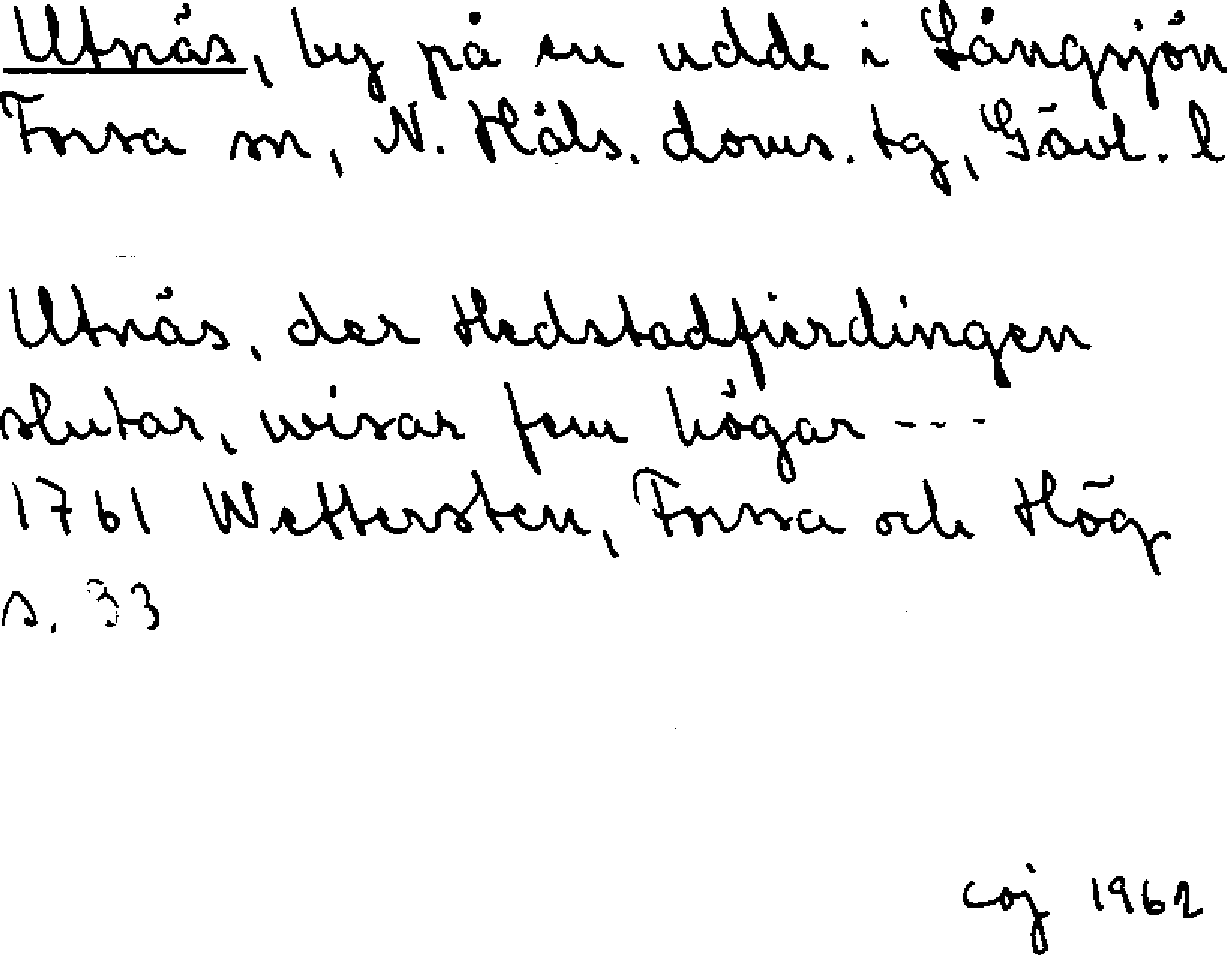 Utnäs, by på en udde i Långsjön
Forsa sn, N. Häls. doms. tg, Gävl. l
Utnäs, der Hedstadfierdingen
slutar, wisar fem högar ---
1761 Wettersten, Forssa och Hög
s. 33
coj 1962